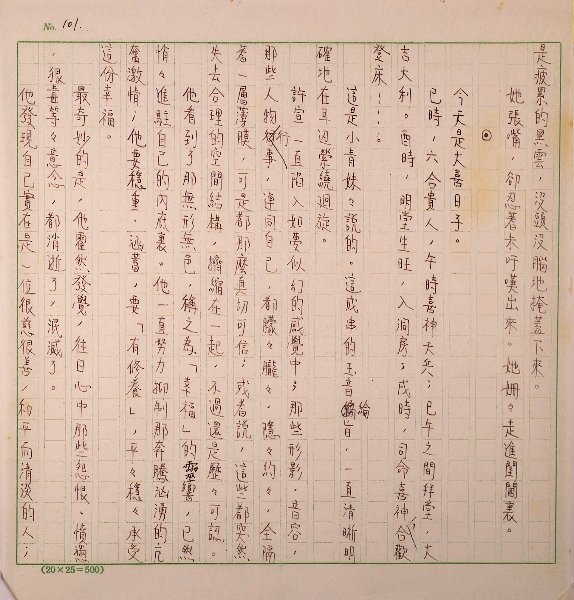 No. 101.
是疲累的黑雲，沒頭沒腦地掩蓋下來。
她張嘴，卻忍著未吁嘆出來。她姍々走進閨閣裏。
⊙
今天是大喜日子。
巳時，六合貴人，午時喜神大兵；巳午之間拜堂，大
吉大利。酉時，明堂生旺，入洞房；戌時，司命喜神合歡
登床……。
這是小青妹々說的。這成串的玉音綸旨，一直清晰明
確地在耳邊縈繞迴旋。
許宣一直陷入如夢似幻的感覺中；那些形影，音容，
那些人物行事，連同自己，都矇々矓々，隱々約々，全隔
著一層薄膜，可是都那麼真切可信；或者說，這些都突然
失去合理的空間結構，擠縮在一起，不過還是歷々可認。
他看到了那無形無色，稱之為「幸福」的靈，已然
悄々進駐自己的內底裏。他一直努力抑制那奔騰洶湧的亢
奮激情；他要穩重，涵蓄，要「有修養」，平々穩々承受
這份幸福。
最奇妙的是，他霍然發覺，往日心中那些怨恨，憤懣
，狠毒等々意念，都消逝了，泯滅了。
他發現自己實在是一位很慈很善，和平而清淡的人；
(20×25=500)